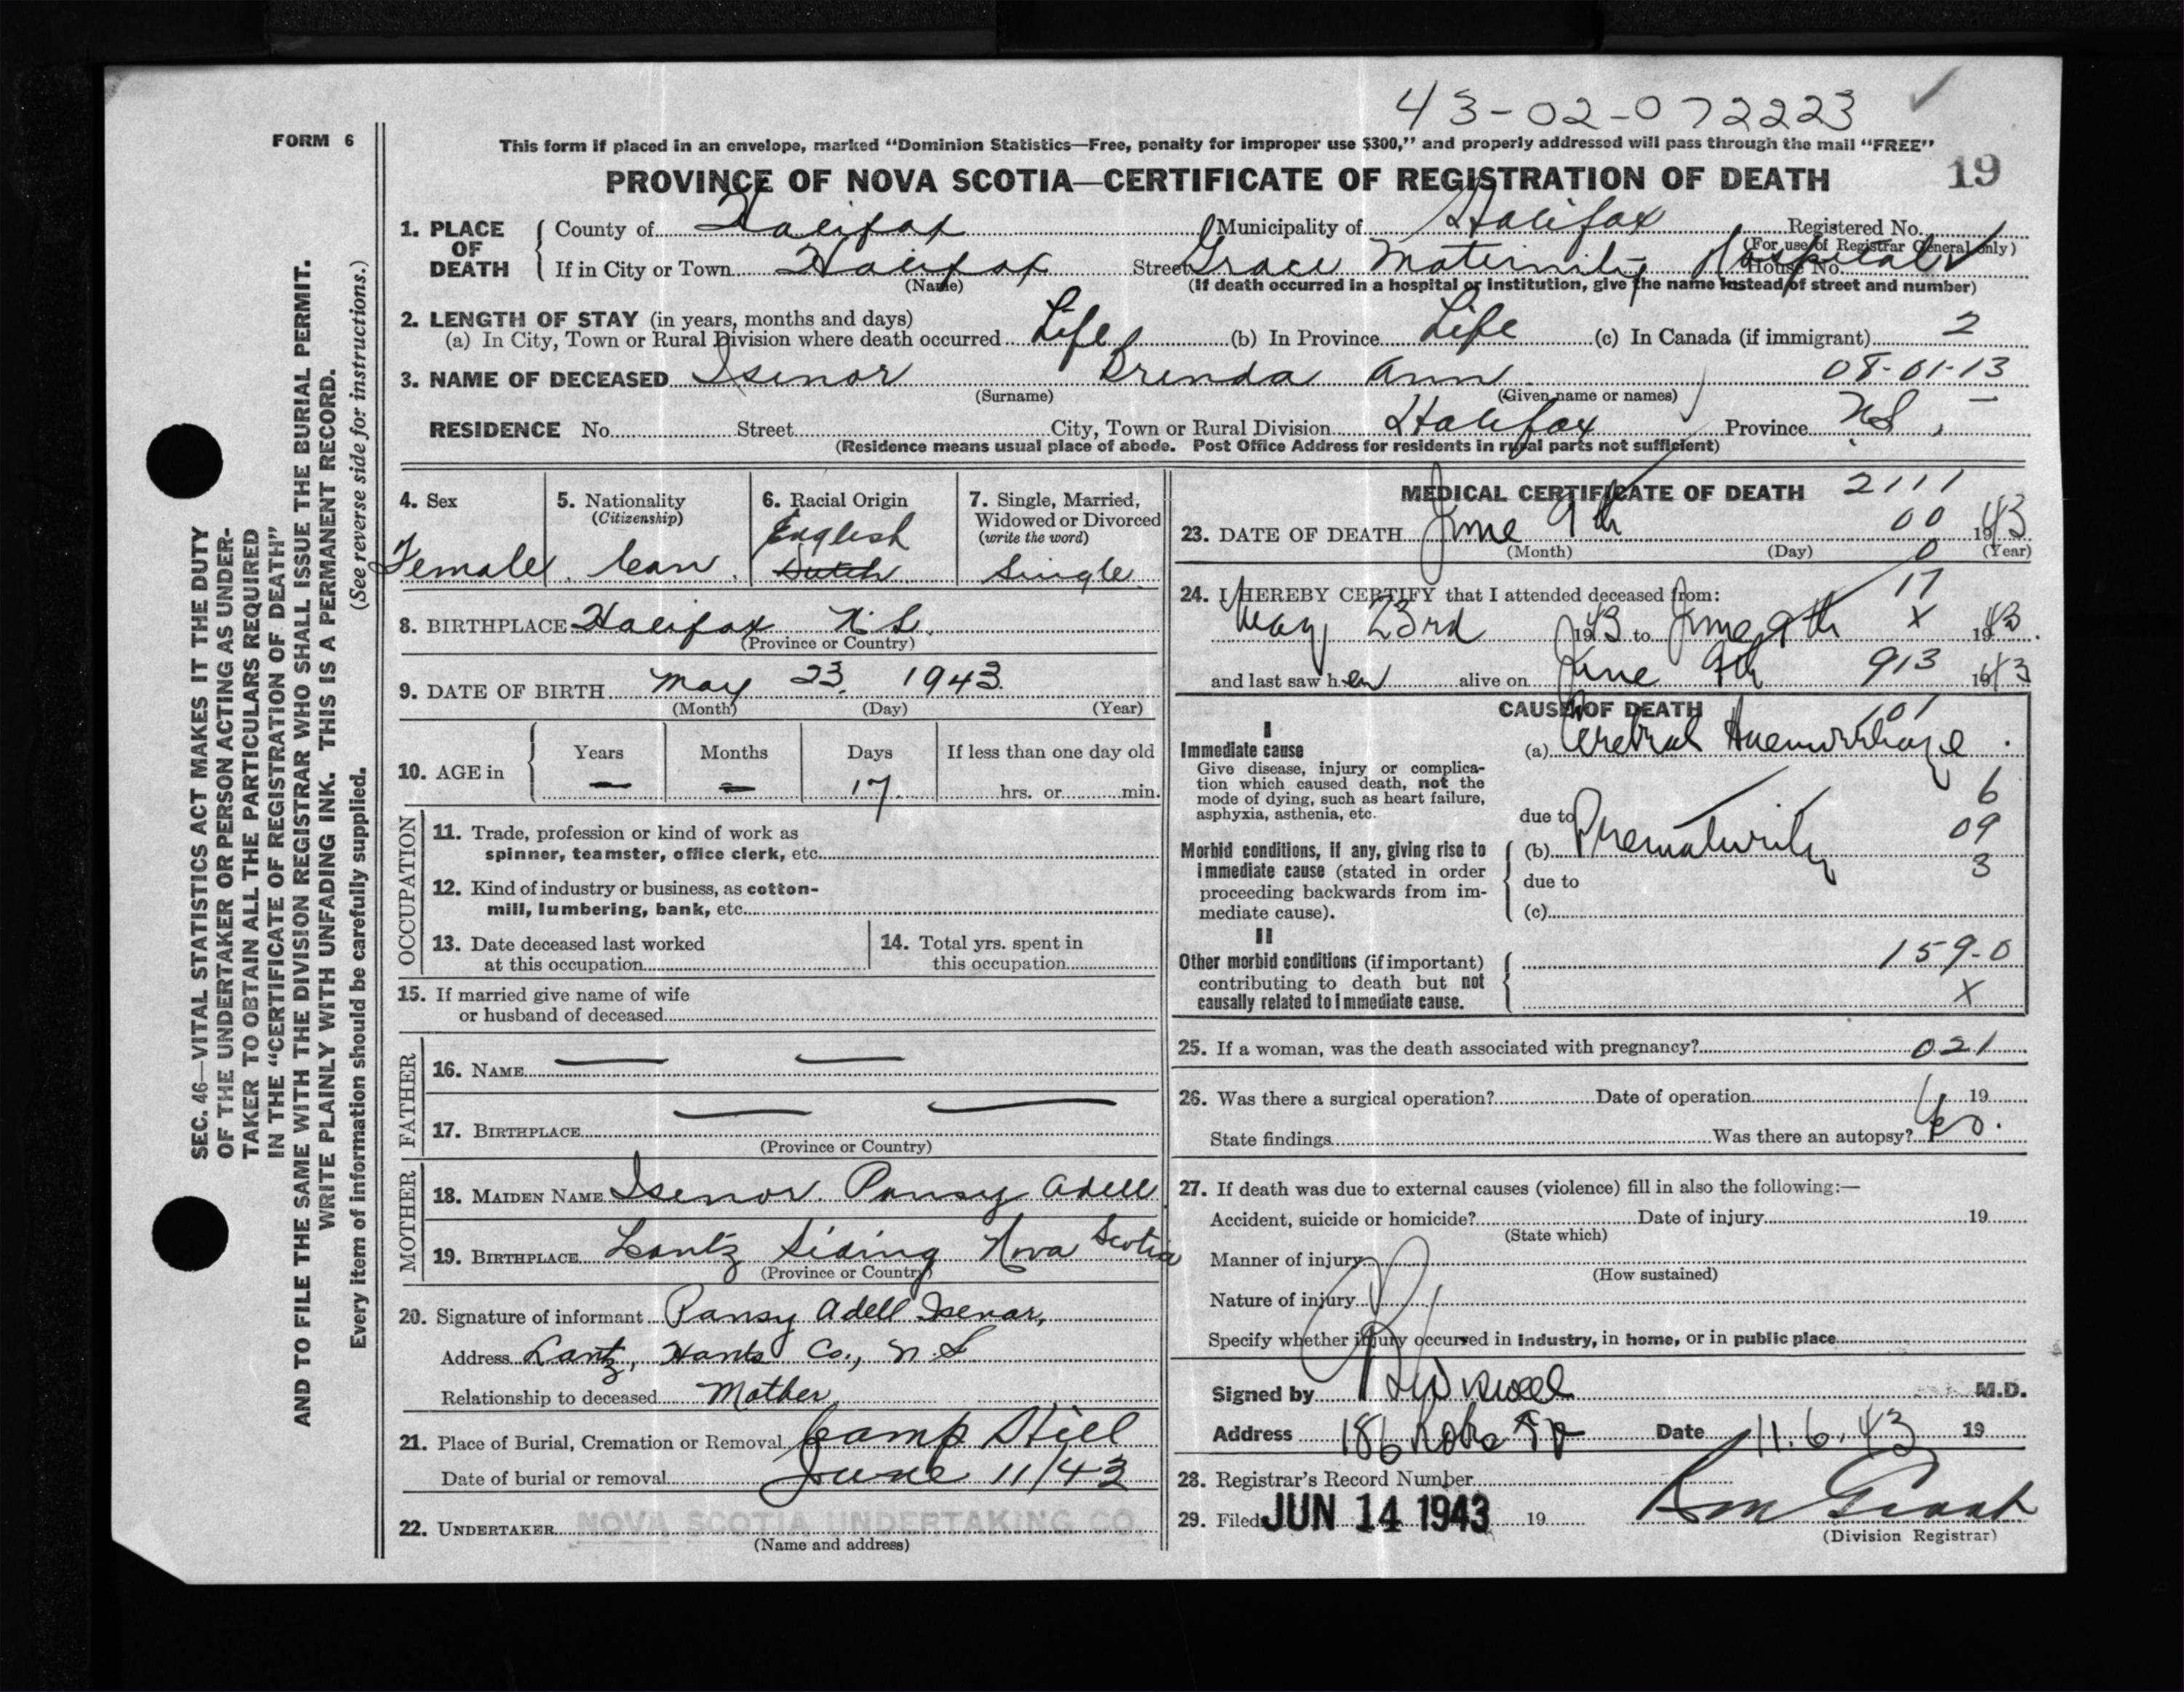 43-02-072223
FORM 6
This form if placed in an envelope, marked "Dominion Statistics—Free, penalty for improper use $300," and properly addressed will pass through the mail "FREE"
PROVINCE OF NOVA SCOTIA—CERTIFICATE OF REGISTRATION OF DEATH 19
1. PLACE OF DEATH { County of Halifax Municipality of Halifax Registered No.
(For use of Registrar General only)
If in City or Town Halifax Street Grace Maternity Hospital House No.
(Name) (If death occurred in a hospital or institution, give the name instead of street and number)
2. LENGTH OF STAY (in years, months and days)
(a) In City, Town or Rural Division where death occurred Life (b) In Province Life (c) In Canada (if immigrant) 2
3. NAME OF DECEASED Isenor Brenda Ann 08-01-13
(Surname) (Given name or names)
RESIDENCE No. Street City, Town or Rural Division Halifax Province N.S.
(Residence means usual place of abode. Post Office Address for residents in rural parts not sufficient)
4. Sex 5. Nationality 6. Racial Origin 7. Single, Married,
(Citizenship) Widowed or Divorced
English (write the word)
Female Can. Dutch Single
8. BIRTHPLACE Halifax N.S.
(Province or Country)
9. DATE OF BIRTH May 23 1943
(Month) (Day) (Year)
10. AGE in { Years Months Days If less than one day old
— — 17 hrs. or min.
OCCUPATION
11. Trade, profession or kind of work as
spinner, teamster, office clerk, etc.
12. Kind of industry or business, as cotton-
mill, lumbering, bank, etc.
13. Date deceased last worked 14. Total yrs. spent in
at this occupation this occupation
15. If married give name of wife
or husband of deceased
FATHER
16. NAME — —
17. BIRTHPLACE — —
(Province or Country)
MOTHER
18. MAIDEN NAME Isenor Pansy Adell
19. BIRTHPLACE Lantz Siding Nova Scotia
(Province or Country)
20. Signature of informant Pansy Adell Isenor,
Address Lantz, Hants Co., N.S
Relationship to deceased Mother
21. Place of Burial, Cremation or Removal Camp Hill
Date of burial or removal June 11/43
22. UNDERTAKER NOVA SCOTIA UNDERTAKING CO.
(Name and address)
MEDICAL CERTIFICATE OF DEATH 2111
00
23. DATE OF DEATH June 9th 1943
(Month) (Day) (Year)
0
24. I HEREBY CERTIFY that I attended deceased from: 17
May 23rd 1943 to June 9th X 1943.
and last saw her alive on June 9th 913 1943
CAUSE OF DEATH 101
I
Immediate cause (a) Cerebral Haemorrhage.
Give disease, injury or complica-
tion which caused death, not the
mode of dying, such as heart failure,
asphyxia, asthenia, etc.
6
due to 09
Morbid conditions, if any, giving rise to (b) Prematurity
immediate cause (stated in order 3
proceeding backwards from im- due to
mediate cause). (c)
II
Other morbid conditions (if important) 159-0
contributing to death but not
causally related to immediate cause. X
25. If a woman, was the death associated with pregnancy? 021
26. Was there a surgical operation? Date of operation 19
State findings Was there an autopsy?
27. If death was due to external causes (violence) fill in also the following:—
Accident, suicide or homicide? Date of injury 19
(State which)
Manner of injury
(How sustained)
Nature of injury
Specify whether injury occurred in industry, in home, or in public place
Signed by M.D.
Address 186 Date 11.6.43 19
28. Registrar's Record Number
29. Filed JUN 14 1943 19
(Division Registrar)
SEC. 46—VITAL STATISTICS ACT MAKES IT THE DUTY
OF THE UNDERTAKER OR PERSON ACTING AS UNDER-
TAKER TO OBTAIN ALL THE PARTICULARS REQUIRED
IN THE "CERTIFICATE OF REGISTRATION OF DEATH"
AND TO FILE THE SAME WITH THE DIVISION REGISTRAR WHO SHALL ISSUE THE BURIAL PERMIT.
WRITE PLAINLY WITH UNFADING INK. THIS IS A PERMANENT RECORD.
Every item of information should be carefully supplied. (See reverse side for instructions.)